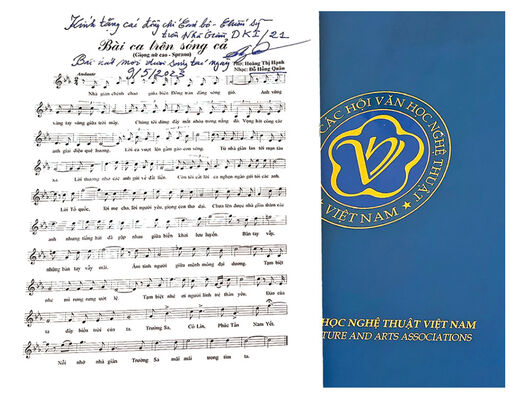 Kính tặng các đồng chí Cán bộ - Chiến sỹ
trên Nhà Giàn DKI/21
Bài ca trên sóng cả
(Giọng nữ cao - Soprano)
Bài hát mới được sáng tác ngày
9/5/2023
Thơ: Hoàng Thị Hạnh
Nhạc: Đỗ Hồng Quân
Andante
Nhà giàn chênh chao giữa biển Đông trăm đắng sóng gió. Anh vững
vàng tay súng giữa trời mây. Chúng tôi đứng đây mắt nhòa trong nắng đỏ. Vọng hát cùng các
anh giai điệu quê hương. Lời ca vượt lên gầm gào con sóng. Từ nhà giàn lan tới mạn tàu
xa. Lời thương nhớ các anh gửi về đất liền. Còn tôi cất lời ca nghẹn ngào gửi tới các anh.
Lời Tổ quốc, lời mẹ cha, lời người yêu, giọng con thơ dại. Chưa lên được nhà giàn thăm các
anh nhưng tiếng hát đã gặp nhau giữa biển khơi lưu luyến. Bàn tay vẫy,
những bàn tay vẫy mãi. Ấm tình người giữa mênh mông đại dương. Tạm biệt
nhé rưng rưng ướt lệ. Tạm biệt nhé ơi người lính trẻ thân yêu. Đảo của
ta đây biển trời của ta. Trường Sa, Cô Lin, Phúc Tần Nam Yết.
Nỗi nhớ nhà giàn Trường Sa mãi mãi trong tim ta.
CÁC HỘI VĂN HỌC NGHỆ THUẬT
VIỆT NAM
HỌC NGHỆ THUẬT VIỆT NAM
TURE AND ARTS ASSOCIATIONS